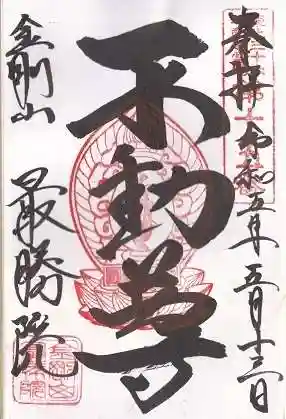 奉拝 令和五年五月十三日
不動尊
金剛山 最勝院